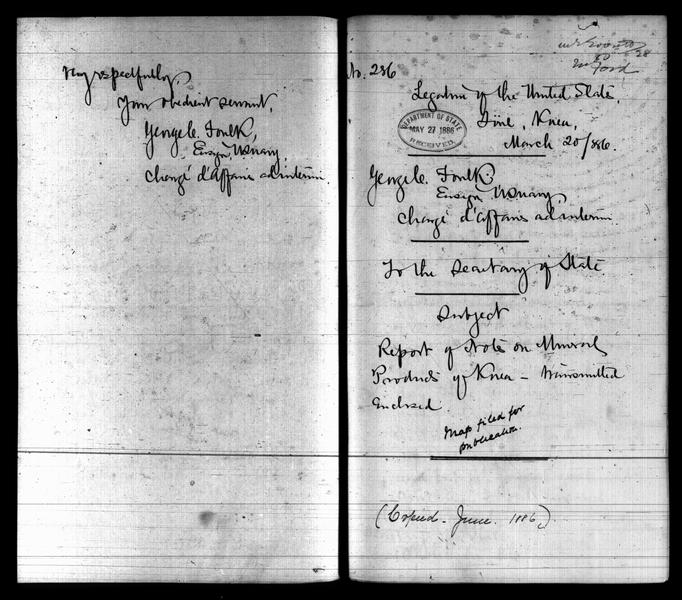 Very respectfully,
Your obedient servant,
George C. Foulk,
Ensign, U.S. Navy,
Chargé d'Affaires ad interim.
No. 286
Legation of the United States,
Korea,
DEPARTMENT OF STATE
MAY 27 1886
RECEIVED
March 20/886.
George C. Foulk,
Ensign, U.S. Navy,
Chargé d'Affaires ad interim.
To the Secretary of State
Subject
Report of Notes on Mineral
Products of Korea – transmitted
Enclosed
Map filed for
publication.
(Copied. June. 1886.)